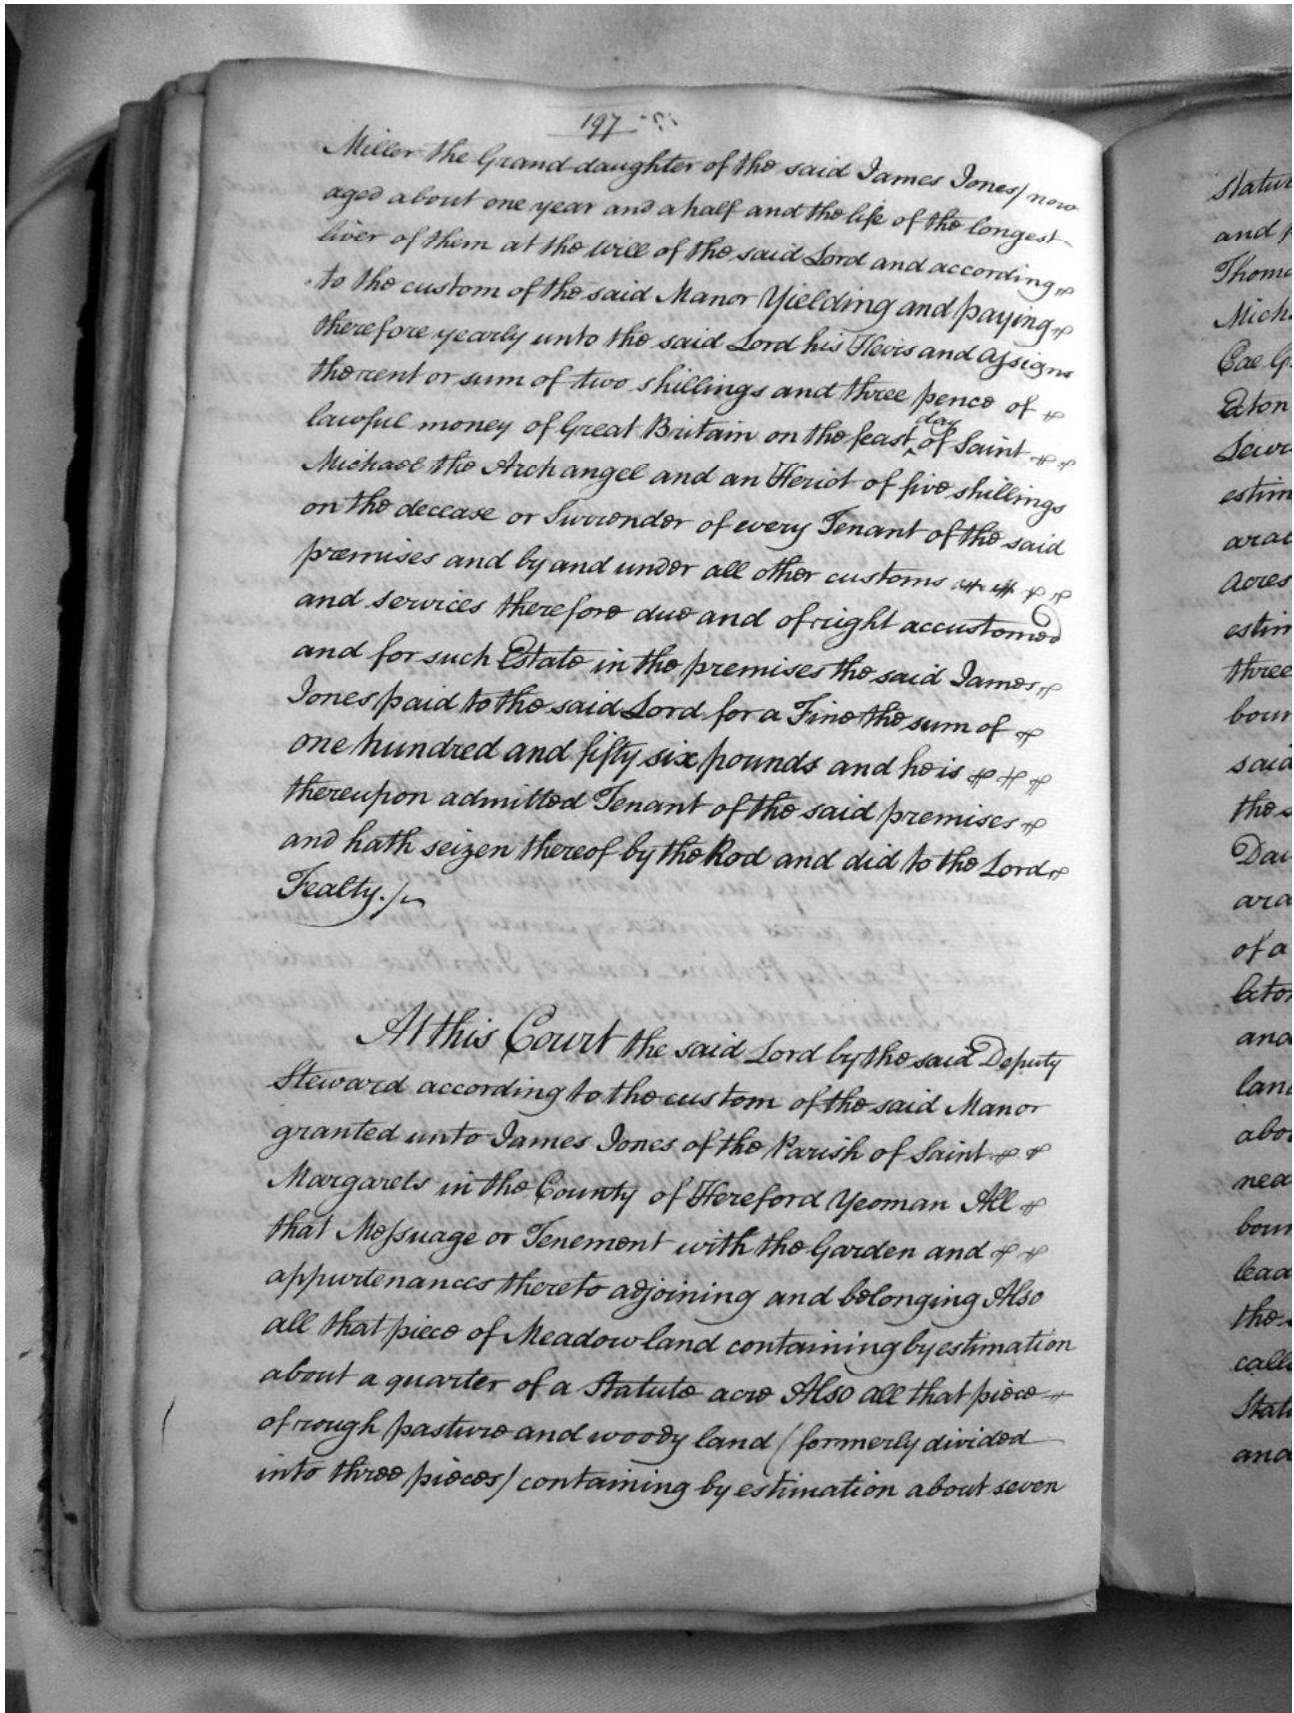 197
Miller the Grand daughter of the said James Jones / now
aged about one year and a half and the life of the longest
liver of them at the will of the said Lord and according
to the custom of the said Manor Yielding and paying
therefore yearly unto the said Lord his Heirs and Assigns
the rent or sum of two shillings and three pence of
lawful money of Great Britain on the feast ^day of Saint
Michael the Archangel and an Heriot of five shillings
on the decease or Surrender of every Tenant of the said
premises and by and under all other customs
and services therefore due and of right accustomed
and for such Estate in the premises the said James
Jones paid to the said Lord for a Fine the sum of
one hundred and fifty six pounds and he is
thereupon admitted Tenant of the said premises
and hath seizen thereof by the Rod and did to the Lord
Fealty./
At this Court the said Lord by the said Deputy
Steward according to the custom of the said Manor
granted unto James Jones of the Parish of Saint
Margarets in the County of Hereford Yeoman All
that Messuage or Tenement with the Garden and
appurtenances thereto adjoining and belonging Also
all that piece of Meadow land containing by estimation
about a quarter of a Statute acre Also all that piece
of rough pasture and woody land (formerly divided
into three pieces) containing by estimation about seven
and
Thoma
Mich
Eaton
estim
Acres
estim
three
boun
said
the s
Dav
of a
and
land
abo
nea
boun
lead
the
calle
Statu
and